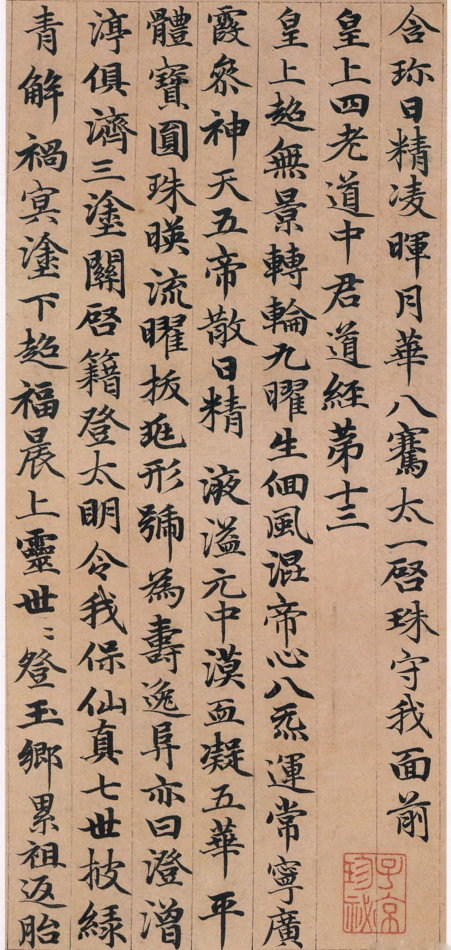 含珎日精凌暉月華八騫太一啓珠守我面前
皇上四老道中君道經苐十三
皇上超無景轉輪九曜生佪風混帝心八炁運常寧廣
霞叅神天五帝散日精 液溢元中漠血凝五華平
體寶圓珠暎流曜拔死形號為壽逸阜亦曰澄潧
渟俱濟三塗關啓籍登太明令我保仙真七世披綠
青解禍冥塗下超福晨上靈世〻登玉鄉累祖返胎
子京珍祕